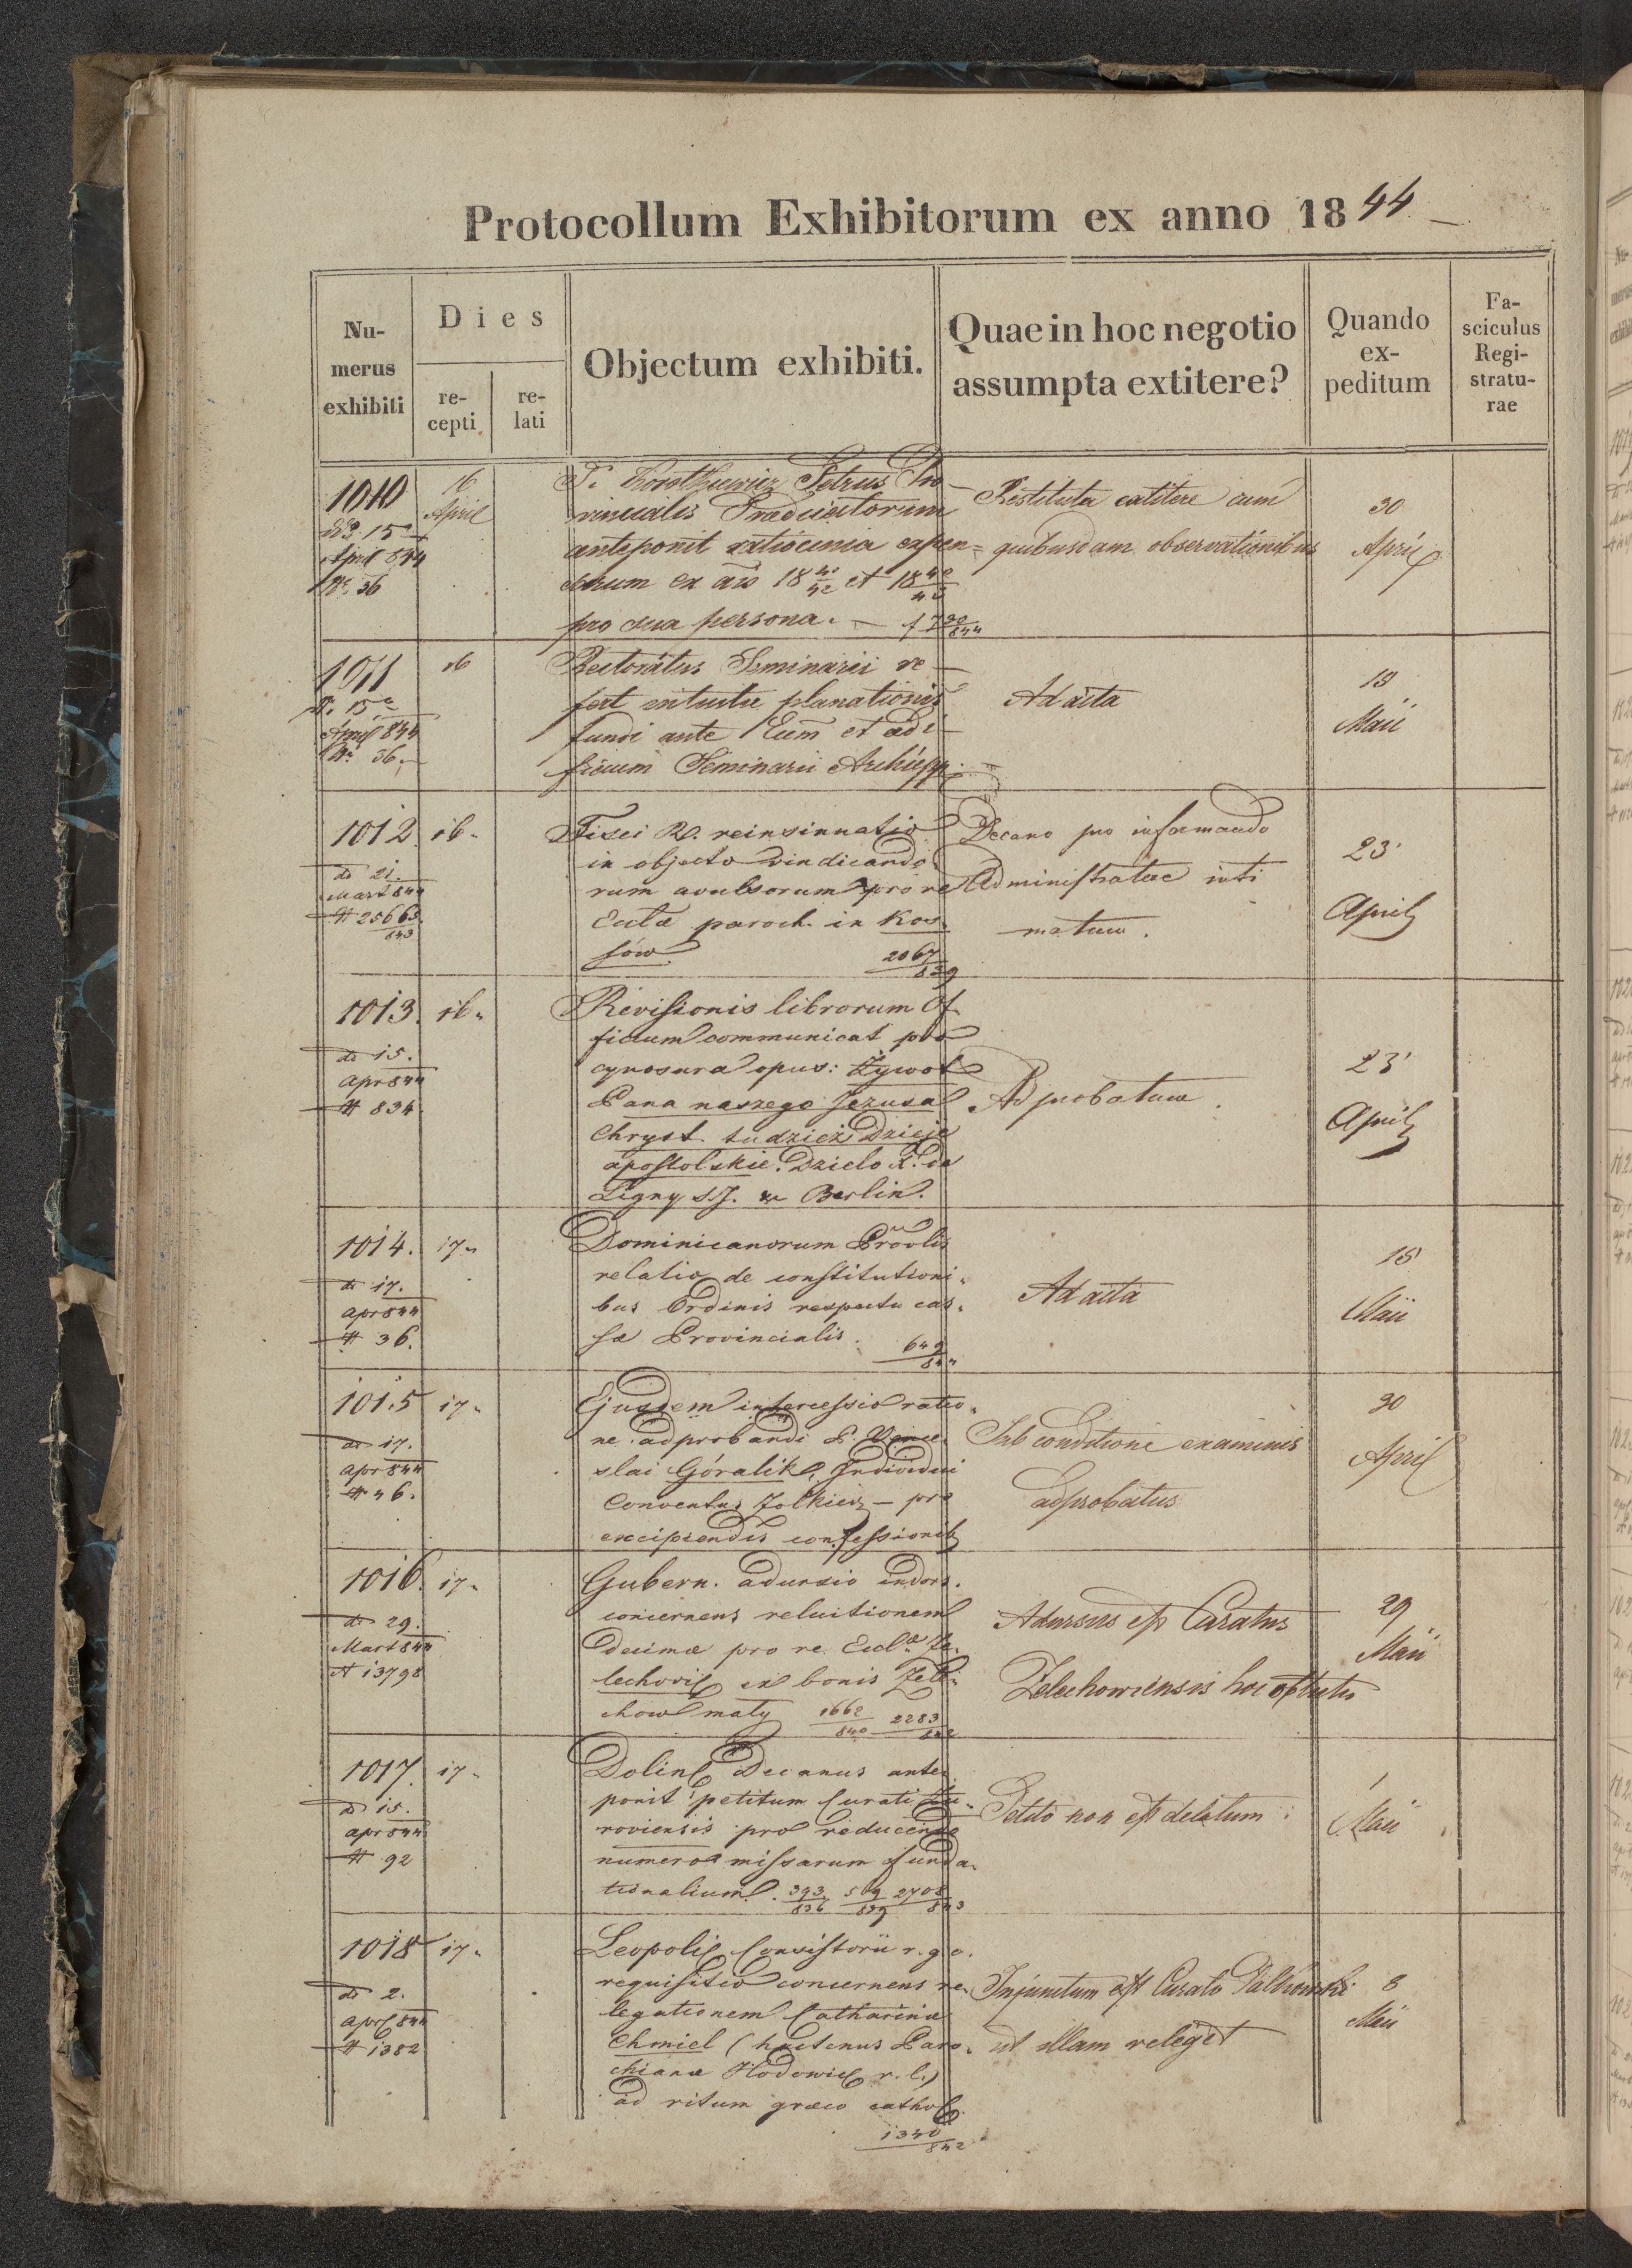 Protocollum Exhibitorum ex anno 1844
Numerus exhibiti
Dies
recepti
relati
Objectum exhibiti.
Quae in hoc negotio assumpta extitere?
Quando expeditum
Fasciculus Registraturae
1010
16 April
15
April 844
Nr. 36
Petrus Pro-
vincialis Praedicatorum
anteponit ratiocinia expen=
sarum ex
pro sua persona.
Restituta extitere cum
quibusdam observationibus
30
April
1011
16
15
April 844
Nr. 36.
Rectoratus Seminarii re-
fert intuitu planationis
fundi ante Eum et aedi-
ficium Seminarii Archiepp.
Ad acta
Maii
1012
16.
do 21.
Mart 844
# 25665
843
Fisci R. reinsinuatio
in objecto vindicando
rum avulsorum pro re
Eccla paroch. in Kos
sów
2067
839
Decano pro informando
Administratore inti
matum.
23
April
1013.
16.
do 15.
apr 844
# 834.
Revissionis librorum Of-
ficium communicat pro
cynosura opus: Żywot
Pana naszego Jezusa
Chryst. tudzież Dzieje
apostolskie. Dzieło X. de
Ligny S.J. Berlin.
Adprobatum.
23
April
1014.
17.
do 17.
apr 844
# 36.
Dominicanorum Provlis
relatio de constitutioni-
bus Ordinis respectu cas-
sae Provincialis.
649
844
Ad acta
Maii
1015
17.
do 17.
apr 844
# 46.
Ejusdem intercessio ratio-
ne adprobandi P. Vence
slai Góralik, Individui
Conventus Zolkiew – pro
excipiendis confessionib
Sub conditione examinis
adprobatus
30
April
1016.
17.
do 29.
Mart 844
# 13798
Gubern. adursio indors.
concernens reluitionem
decimae pro re Eccla Że-
lechovil ex bonis Żele-
chow mały
1662
840
2283
842
Adursus est Curatus
Zelechowiensis hoc obtutu
29
Maii
1017.
17.
do 15.
apr 844
# 92
Dolin Decanus ante
ponit petitum Curati Żu-
roviensis pro reducendo
numero missarum funda-
tionalium.
393
836
509
839
2708
843
Petito non est delatum
1
Maii
1018
17.
do 2.
april 844
# 1382
Leopoli Consistorii r. g. c.
requisitio concernens re-
legationem Catharinae
Chmiel (hactenus Paro-
chianae Hodowic r. l.)
ad ritum graeco cathol.
1340
842
Injunctum est Curato
ut illam releget
8
Maii